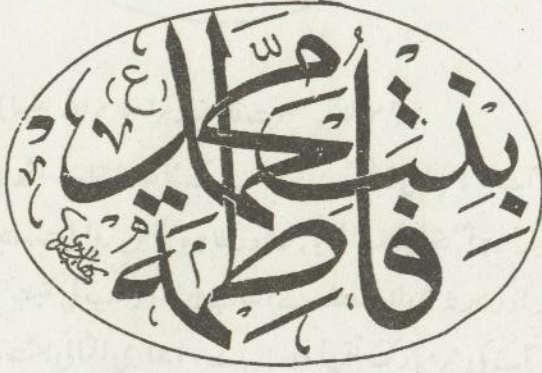 فَاطِمَة
بِنْتِ مُحَمَّد
(ع)